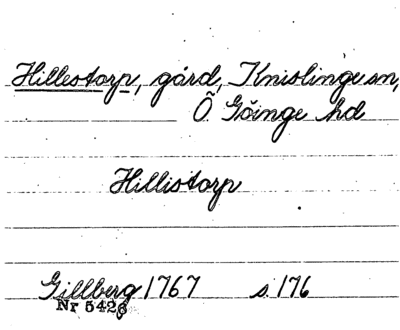 Hillestorp, gård, Knislinge sn,
Ö. Göinge hd
Hillistorp
Gillberg 1767 s. 176
Nr 5426